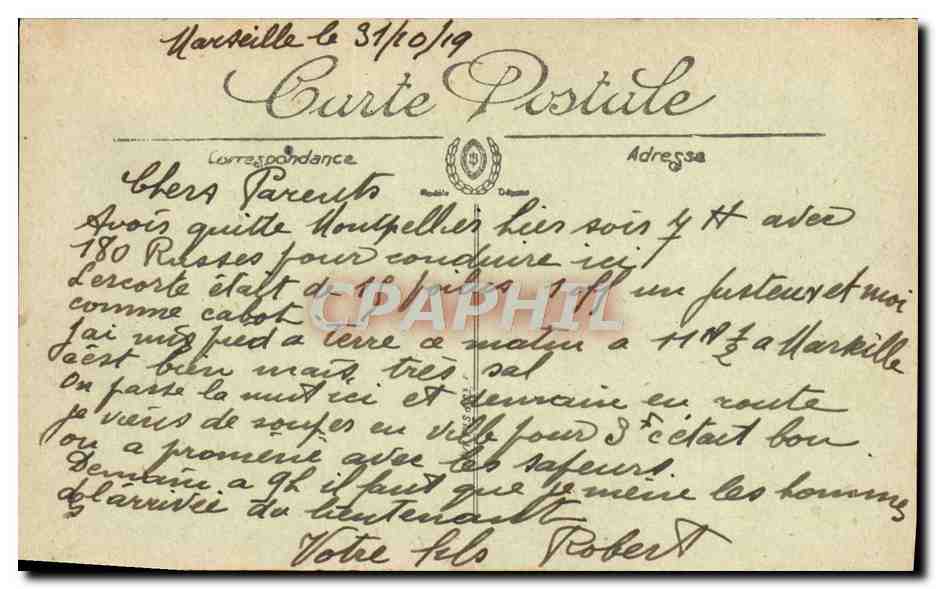 Marseille le 31/10/19
Carte Postale
Correspondance
Adresse
Modèle Déposé
Chers Parents
Avois quitté Montpellier hier soir 7 H avec
180 Russes pour conduire ici
Lescorte était de poilus 1 off un justeux et moi
comme cabot
J'ai mis pied a terre ce matin a 11 H ½ a Marseille
c'est bien mais très sal
On passe la nuit ici et demain en route
je viens de souper en ville pour 3 c'était bon
on a promené avec les sapeurs.
Demain a 9h il faut que je mène les hommes
a l'arrivée du lieutenant
Votre fils Robert
CPAPHIL